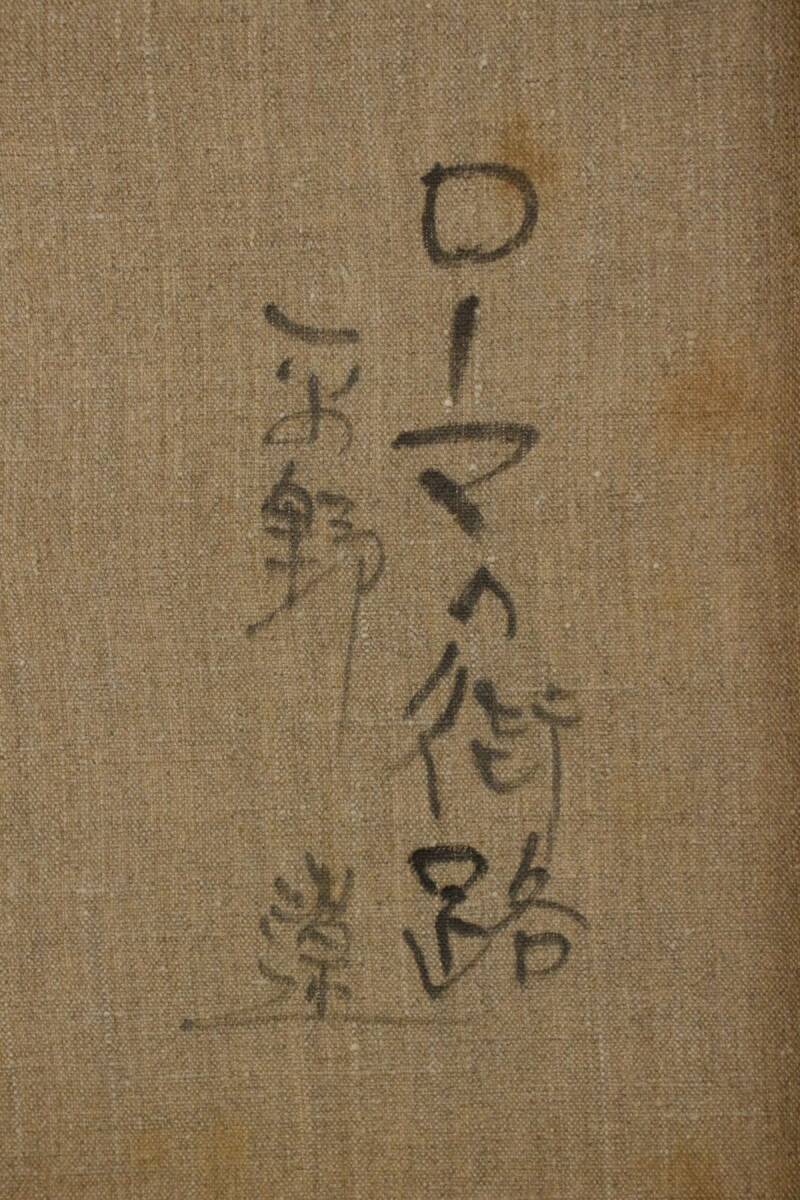 ローマの街路
平野 遼